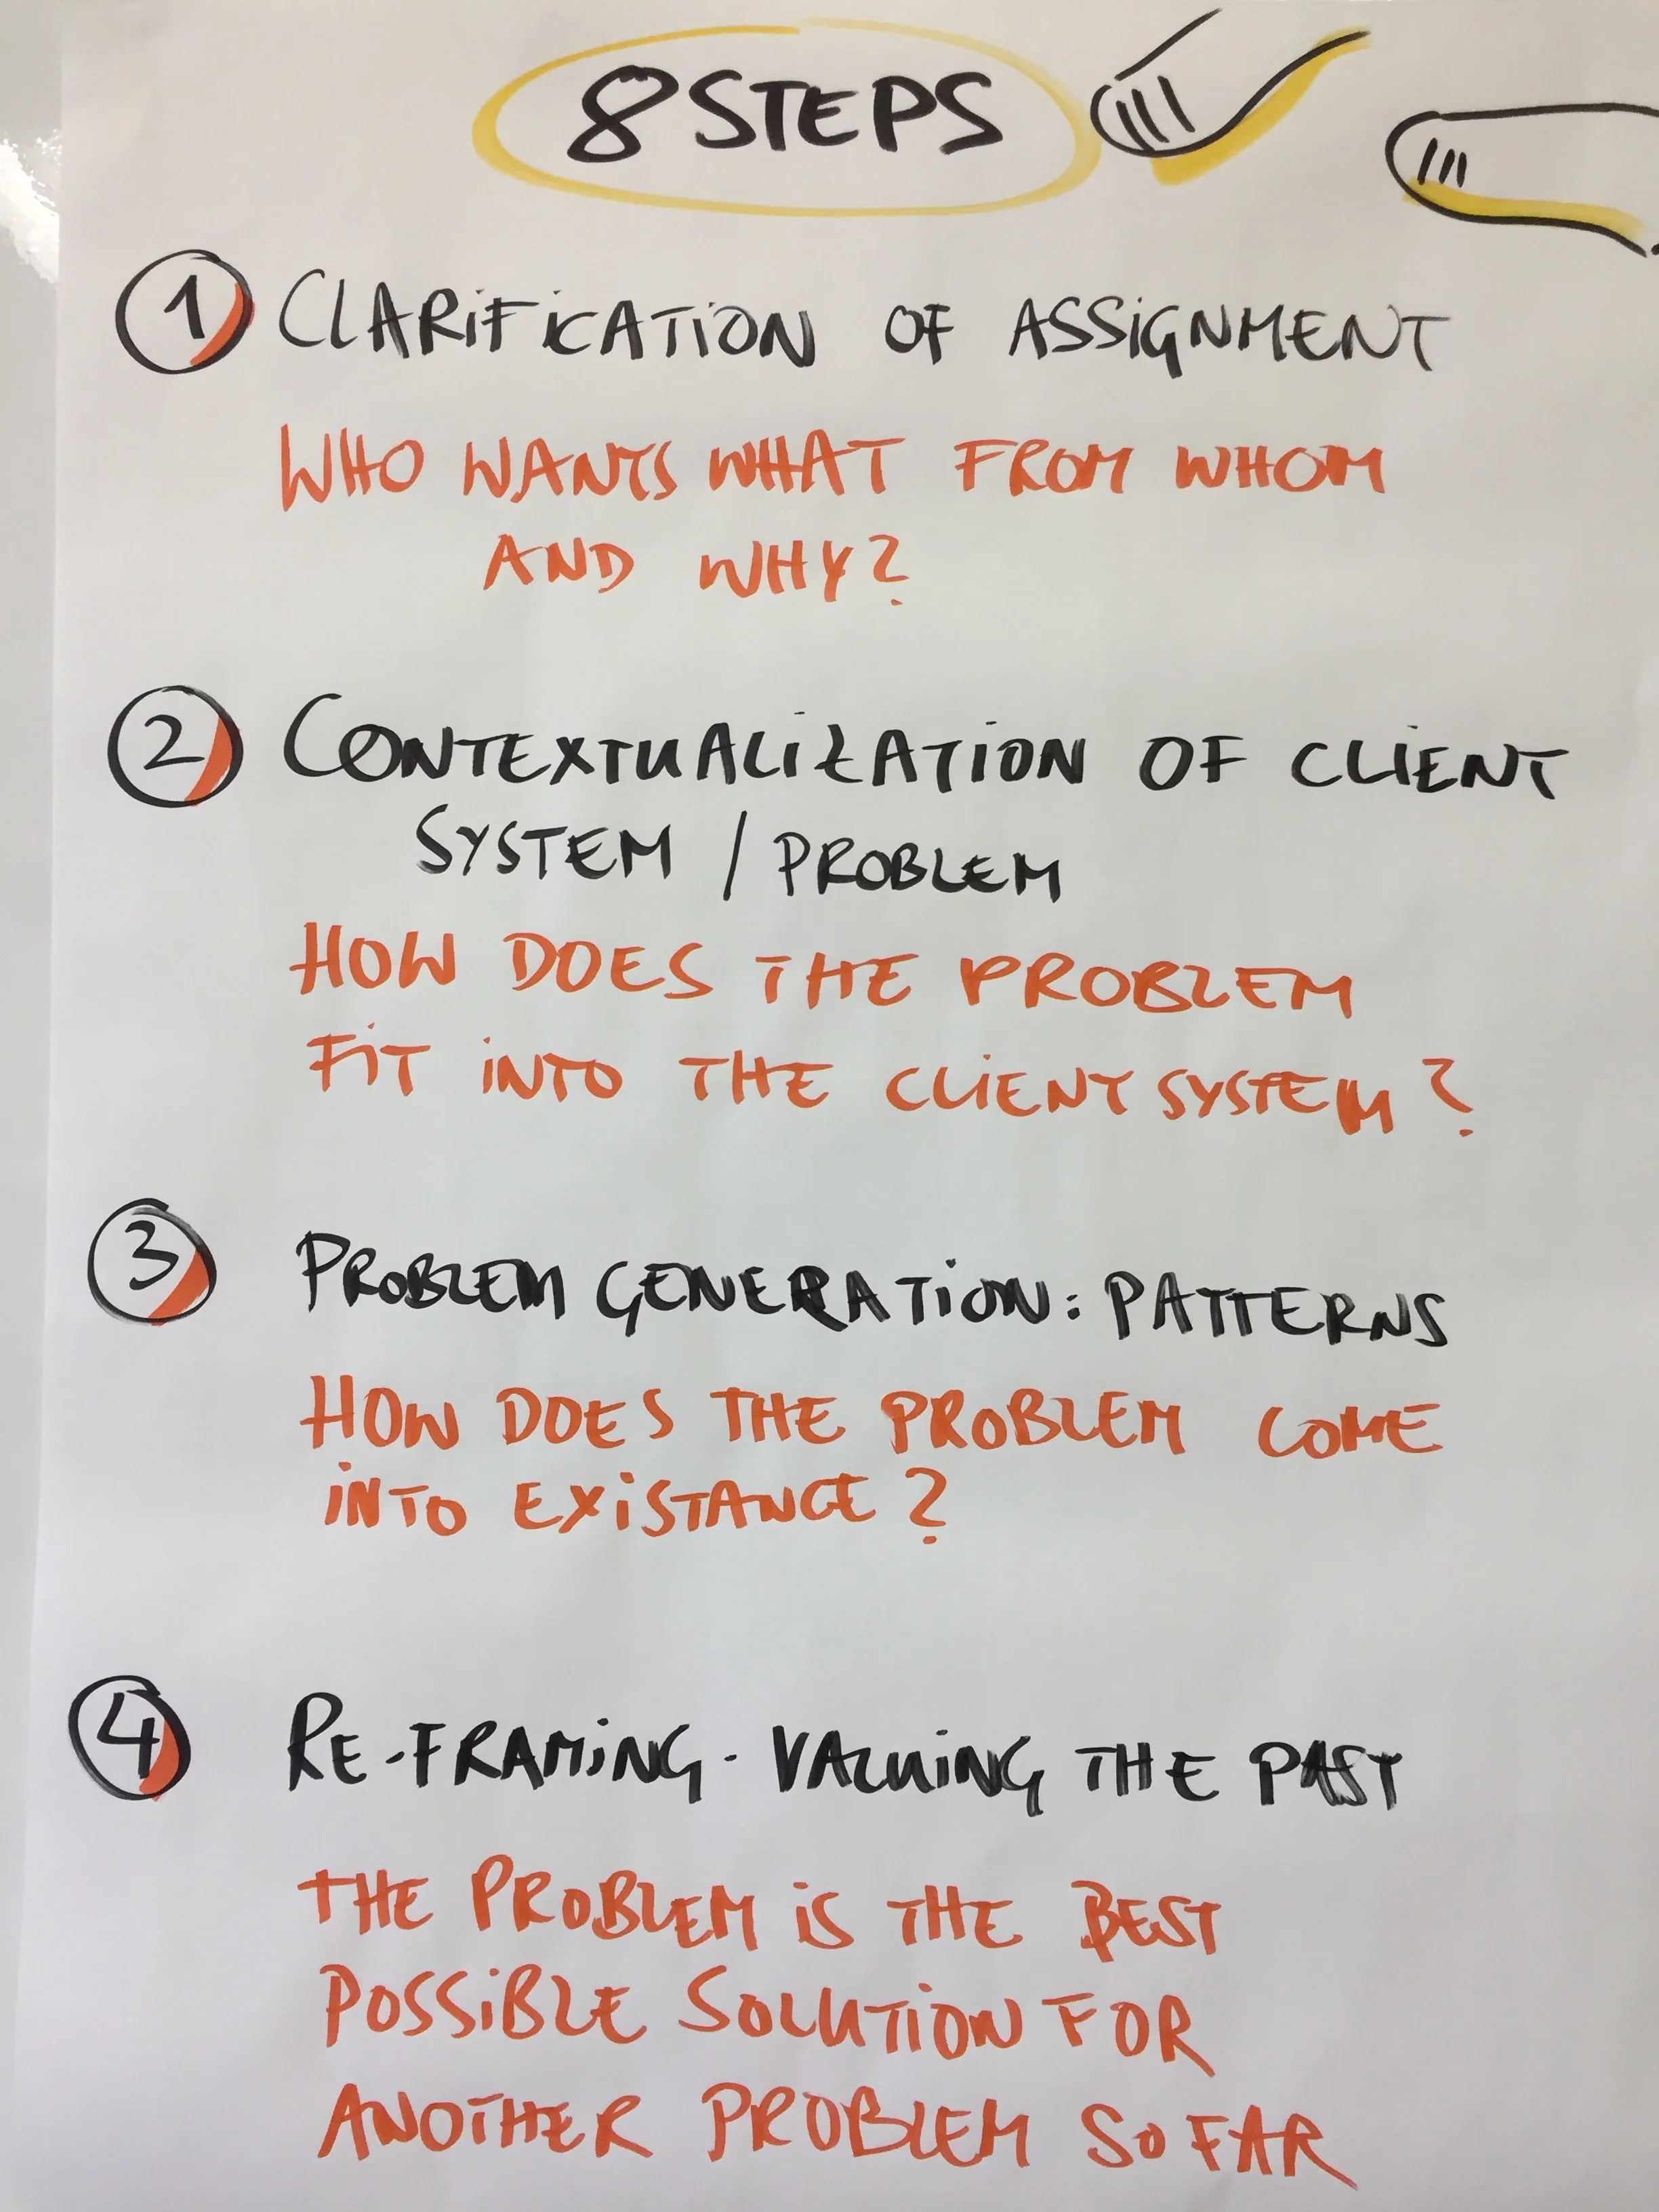 8 STEPS
1 CLARIFICATION OF ASSIGNMENT
WHO WANTS WHAT FROM WHOM
AND WHY?
2 CONTEXTUALIZATION OF CLIENT
SYSTEM / PROBLEM
HOW DOES THE PROBLEM
FIT INTO THE CLIENT SYSTEM?
3 PROBLEM GENERATION: PATTERNS
HOW DOES THE PROBLEM COME
INTO EXISTANCE?
4 RE-FRAMING - VALUING THE PAST
THE PROBLEM IS THE BEST
POSSIBLE SOLUTION FOR
ANOTHER PROBLEM SO FAR